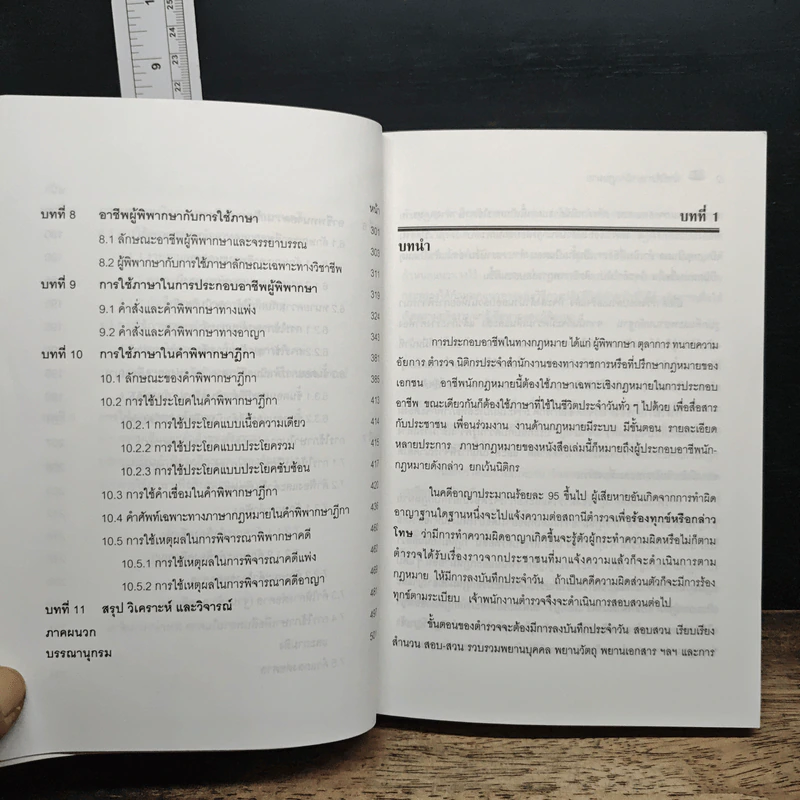 9
25
24
23
22
หน้า
บทที่ 8 อาชีพผู้พิพากษากับการใช้ภาษา 301
8.1 ลักษณะอาชีพผู้พิพากษาและจรรยาบรรณ 303
8.2 ผู้พิพากษากับการใช้ภาษาลักษณะเฉพาะทางวิชาชีพ 311
บทที่ 9 การใช้ภาษาในการประกอบอาชีพผู้พิพากษา 319
9.1 คำสั่งและคำพิพากษาทางแพ่ง 324
9.2 คำสั่งและคำพิพากษาทางอาญา 343
บทที่ 10 การใช้ภาษาในคำพิพากษาฎีกา 381
10.1 ลักษณะของคำพิพากษาฎีกา 385
10.2 การใช้ประโยคในคำพิพากษาฎีกา 413
10.2.1 การใช้ประโยคแบบเนื้อความเดียว 414
10.2.2 การใช้ประโยคแบบประโยครวม 415
10.2.3 การใช้ประโยคแบบประโยคซับซ้อน 417
10.3 การใช้คำเชื่อมในคำพิพากษาฎีกา 420
10.4 คำศัพท์เฉพาะทางภาษากฎหมายในคำพิพากษาฎีกา
10.5 การใช้เหตุผลในการพิจารณาพิพากษาคดี
10.5.1 การใช้เหตุผลในการพิจารณาคดีแพ่ง
10.5.2 การใช้เหตุผลในการพิจารณาคดีอาญา
บทที่ 11 สรุป วิเคราะห์ และวิจารณ์
ภาคผนวก
บรรณานุกรม
บทที่ 1
บทนำ
การประกอบอาชีพในทางกฎหมาย ได้แก่ ผู้พิพากษา ตุลาการ ทนายความ
อัยการ ตำรวจ นิติกรประจำสำนักงานของทางราชการหรือที่ปรึกษากฎหมายของ
เอกชน อาชีพนักกฎหมายนี้ต้องใช้ภาษาเฉพาะเชิงกฎหมายในการประกอบ
อาชีพ ขณะเดียวกันก็ต้องใช้ภาษาที่ใช้ในชีวิตประจำวันทั่ว ๆ ไปด้วย เพื่อสื่อสาร
กับประชาชน เพื่อนร่วมงาน งานด้านกฎหมายมีระบบ มีขั้นตอน รายละเอียด
หลายประการ ภาษากฎหมายของหนังสือเล่มนี้ก็หมายถึงผู้ประกอบอาชีพนัก-
กฎหมายดังกล่าว ยกเว้นนิติกร
ในคดีอาญาประมาณร้อยละ 95 ขึ้นไป ผู้เสียหายอันเกิดจากการทำผิด
อาญาฐานใดฐานหนึ่งจะไปแจ้งความต่อสถานีตำรวจเพื่อร้องทุกข์หรือกล่าว
โทษ ว่ามีการทำความผิดอาญาเกิดขึ้นจะรู้ตัวผู้กระทำความผิดหรือไม่ก็ตาม
ตำรวจได้รับเรื่องราวจากประชาชนที่มาแจ้งความแล้วก็จะดำเนินการตาม
กฎหมาย ให้มีการลงบันทึกประจำวัน ถ้าเป็นคดีความผิดส่วนตัวก็จะมีการร้อง
ทุกข์ตามระเบียบ เจ้าพนักงานตำรวจจึงจะดำเนินการสอบสวนต่อไป
ขั้นตอนของตำรวจจะต้องมีการลงบันทึกประจำวัน สอบสวน เรียบเรียง
สำนวน สอบ-สวน รวบรวมพยานบุคคล พยานวัตถุ พยานเอกสาร ฯลฯ และการ